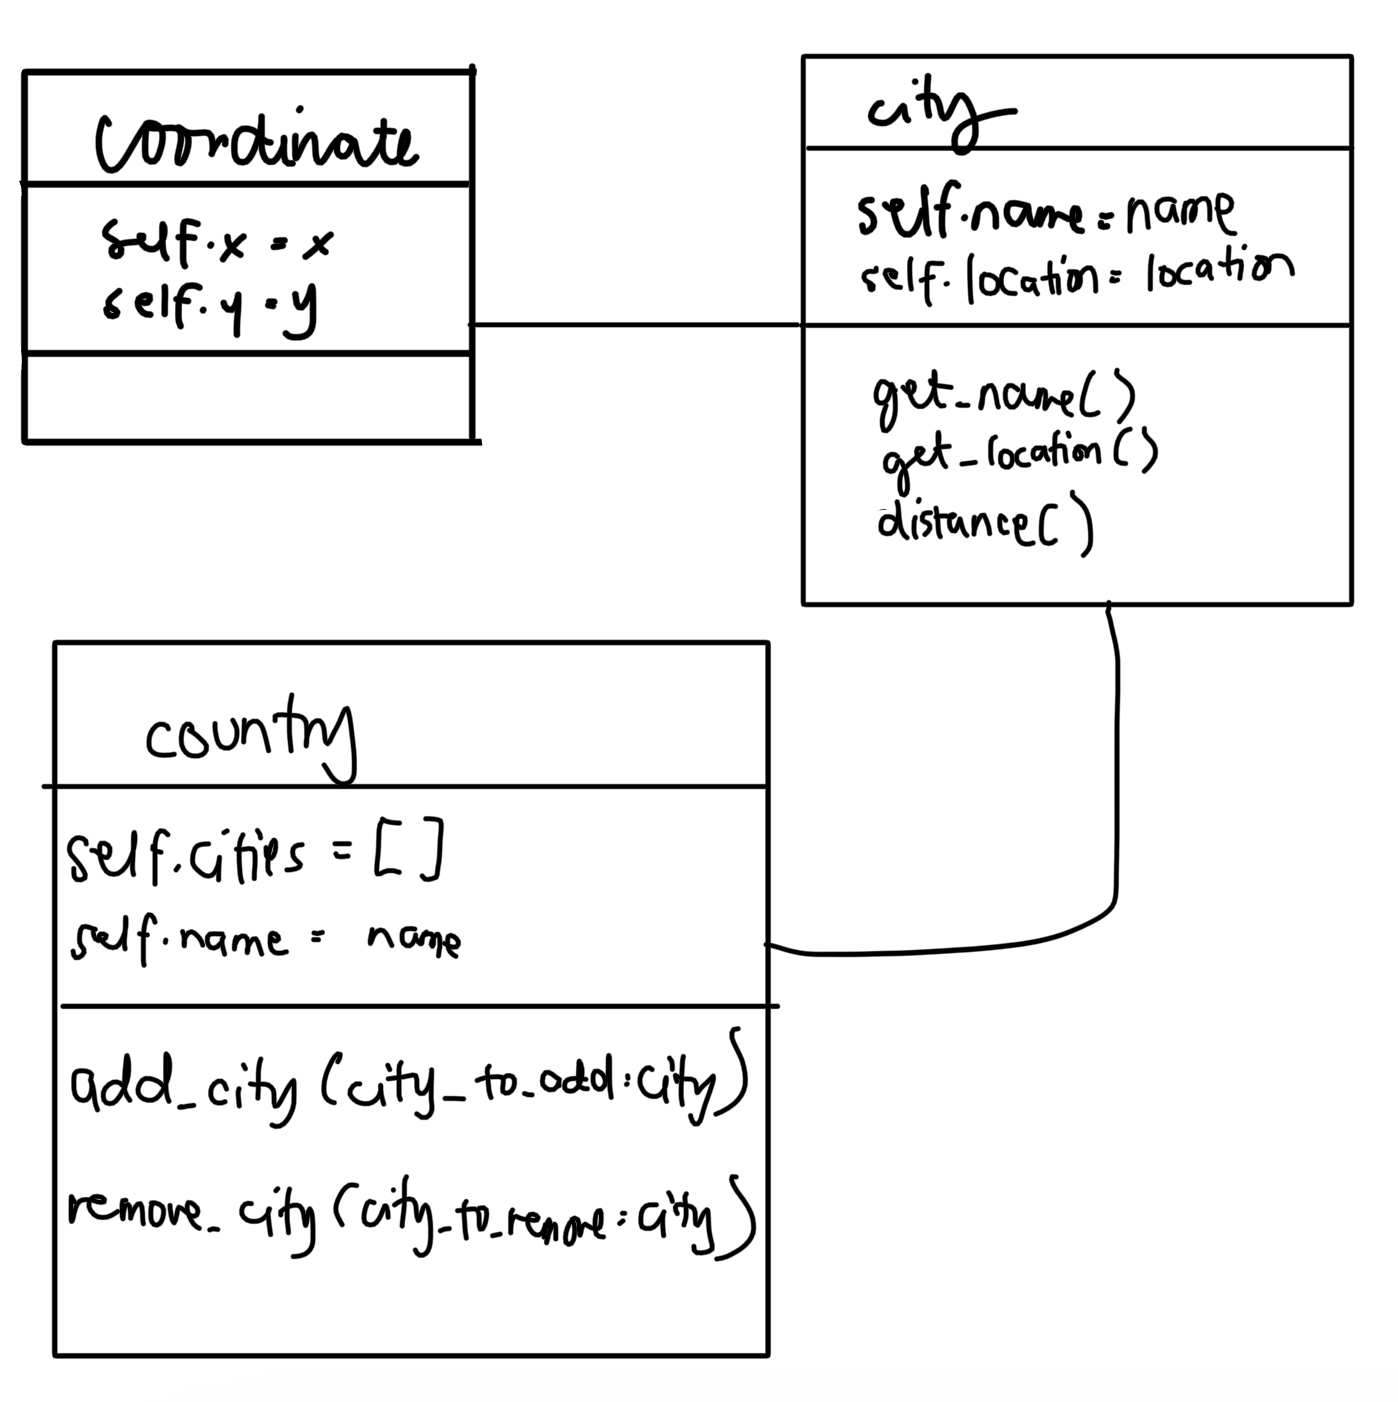 coordinate
self.x = x
self.y = y
city
self.name = name
self.location = location
get_name()
get_location()
distance()
country
self.cities = []
self.name = name
add_city (city_to_add:city)
remove_city (city_to_remove:city)